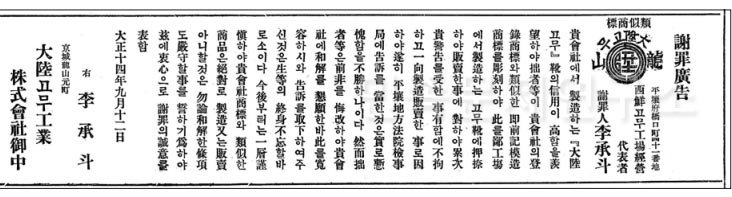 謝罪廣告
平壤府橋口町四十二番地
西鮮고무工場經營
代表者
謝罪人 李承斗
類似商標
大陸고무
龍 陸 山
貴會社에서 製造하는『大陸
고무』靴의 信用이 高함을 羨
望하야 拙者等이 貴會社의 登
錄商標와 類似한 卽前記模造
商標를 彫刻하야 此를 鄙工場
에서 製造하는 고무靴에 押捺
하야 販賣한 事에 對하야 累次
貴警告를 受한 事有함에 不拘
하고 一向製造販賣한 事로 因
하야 遂히 平壤地方法院檢事
局에 告訴를 當한 것은 實로 慙
愧함을 不勝하나이다 然而拙
者等은 前非를 悔改하야 貴會
社에 和解를 懇願한바 此를 寬
容하시와 告訴를 取下하여주
신것은 生等의 終身不忘할바
로소이다 今後부터는 一層謹
愼하야 貴會社商標와 類似한
商品은 絶對로 製造又는 販賣
아니할것은 勿論和解한 條項
도 嚴守할事를 誓하기 爲하야
玆에 衷心으로 謝罪의 誠意를
表함
大正十四年九月十二日
右 李承斗
京城龍山元町
大陸고무工業
株式會社御中